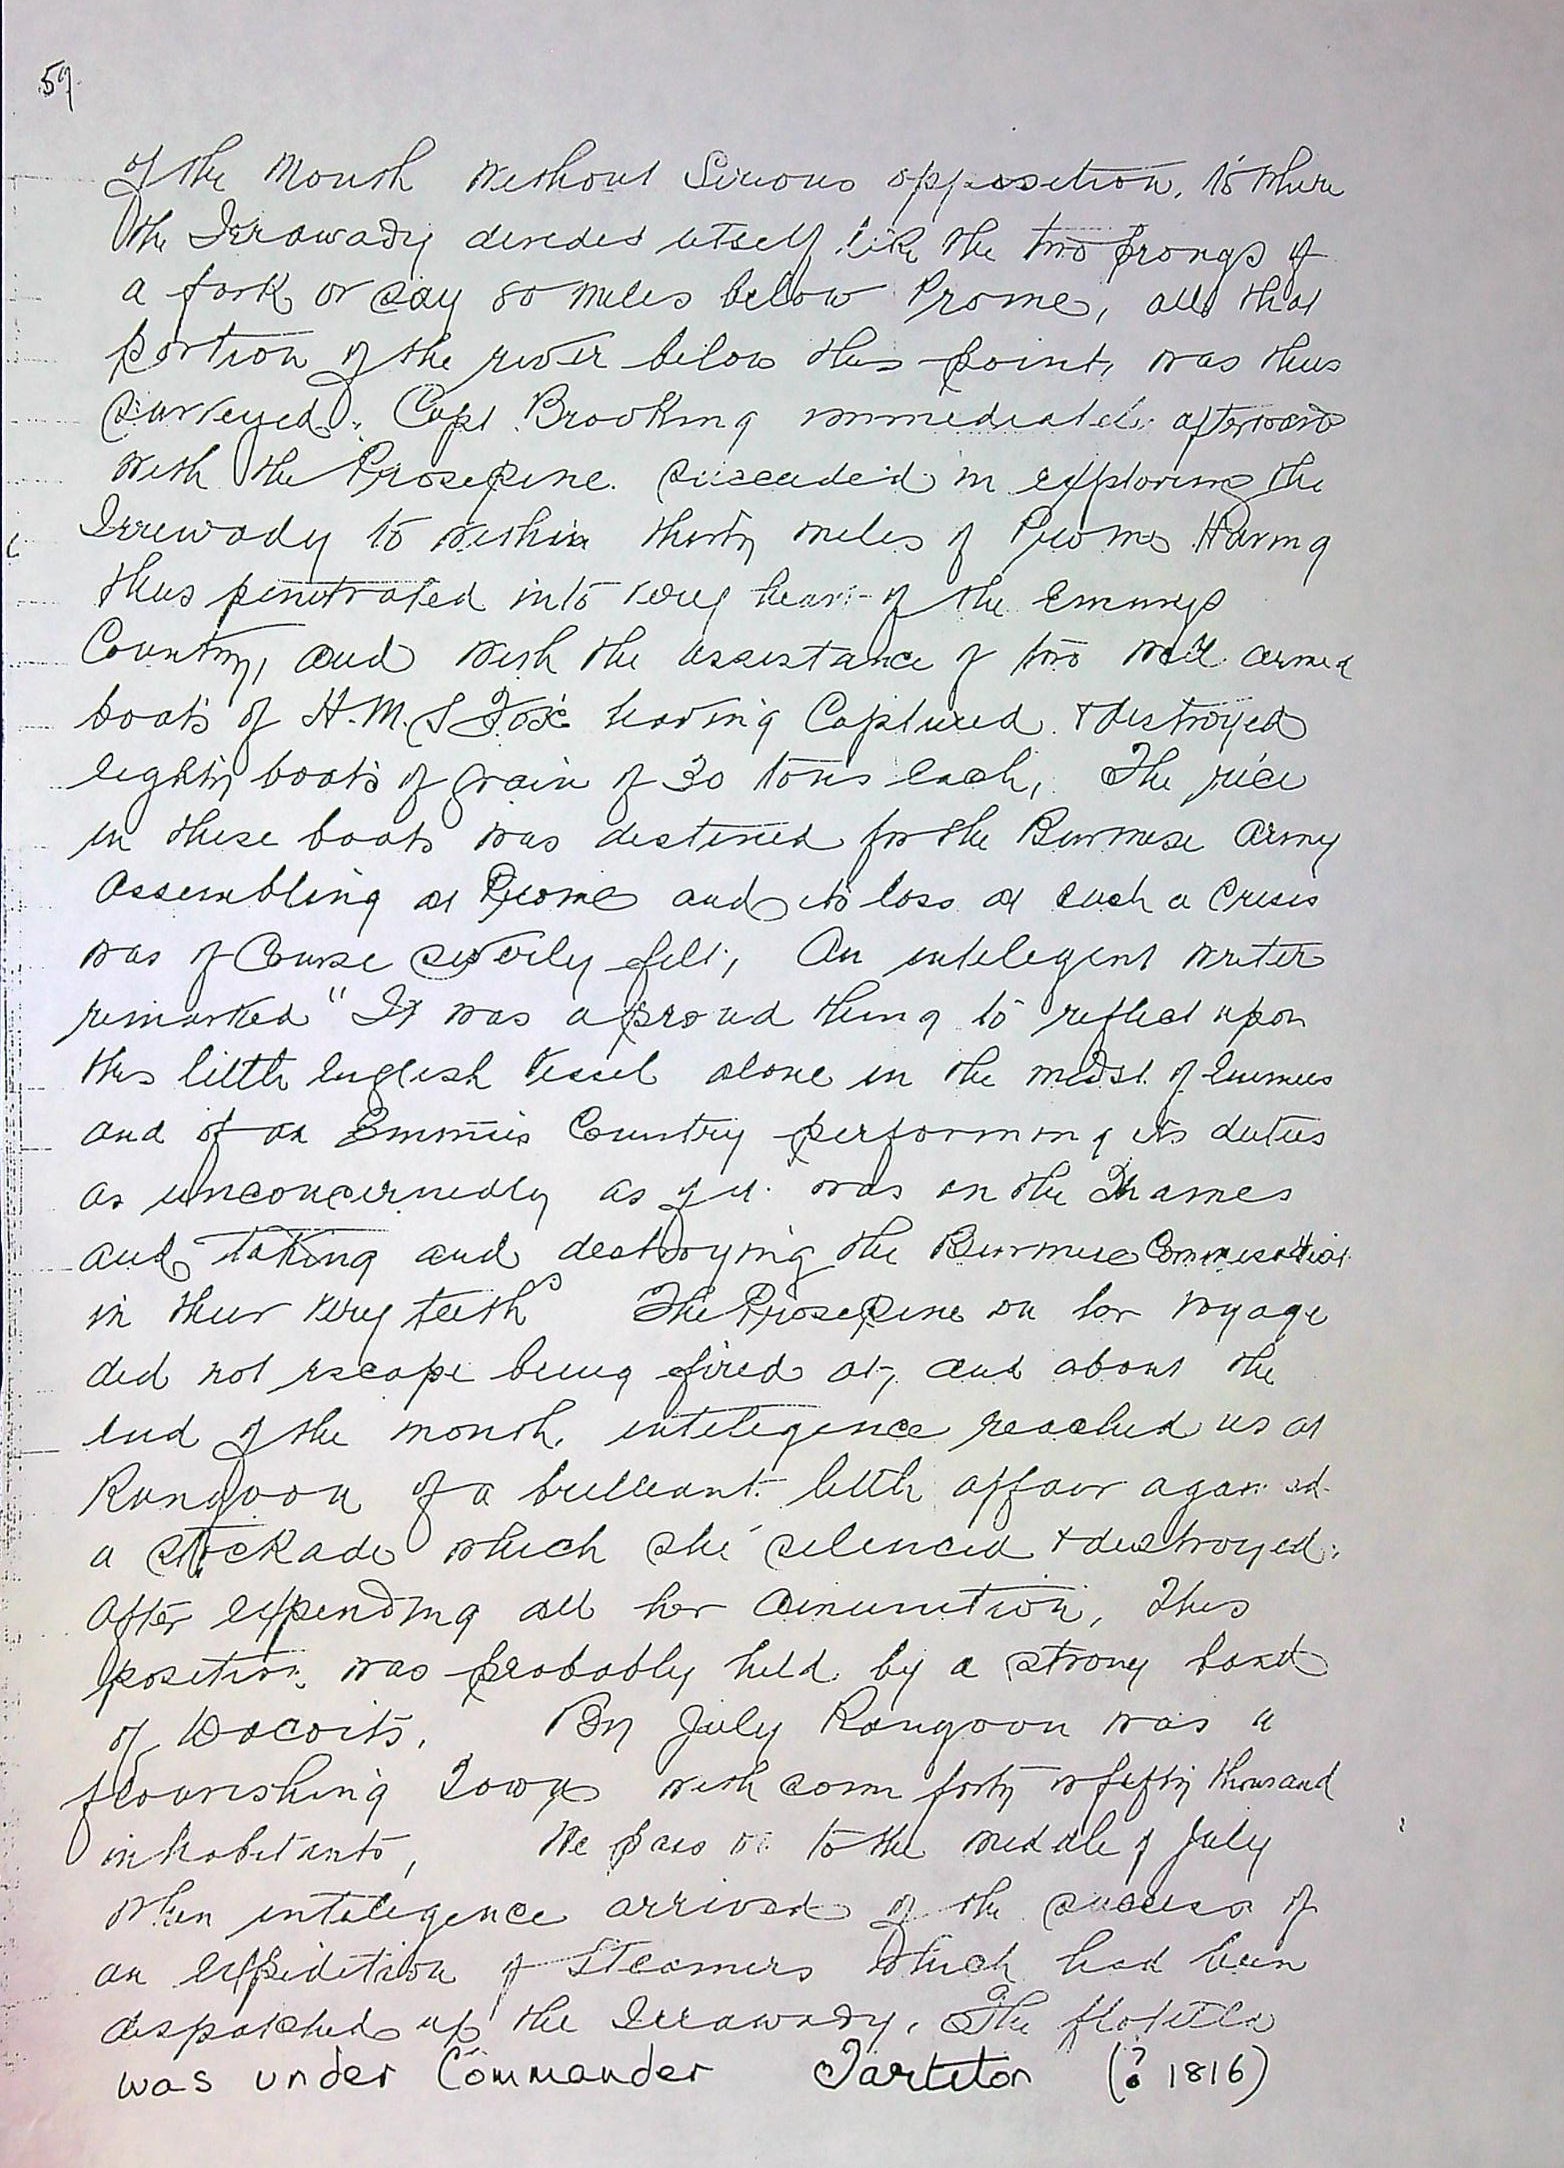 59
of the Month without Serious opposition, to where
the Irrawady divides itself like the two prongs of
a fork or say 80 miles below Prome, all that
portion of the river below this point, was thus
surveyed. Capt Brooking immediately afterward
with the Prosepine succeeded in exploring the
Irrewady to within thirty miles of Prome Having
thus penetrated into very heart of the Emmys
Country, and with the assistance of two well armed
boats of H.M.S Fox having Captured & destroyed
eighty boats of grain of 30 tons each, The rice
in these boats was destined for the Burmese Army
Assembling at Prome and its loss at such a Crisis
was of Course severly felt, An intelegent writer
remarked " It was a proud thing to reflect upon
this little english Vessel alone in the midst of Enimies
and of an Emmies Country performing its duties
as unconcernedly as if it was on the Thames
and taking and destroying the Burmese Commisariat
in their very teeth" The Prosepine on her voyage
did not escape being fired at, and about the
end of the month, intelegence reached us at
Rangoon of a brilleant little affair against
a stockade which she silenced & destroyed
after expending all her amunition, This
position was probably held by a strong band
of Dacoits, By July Rangoon was a
flourishing Town with some forty or fifty thousand
inhabitants, We pass on to the middle of July
when intelegence arrived of the success of
an expidition of Steamers which had been
dispatched up the Irrawady, The flotilla
was under Commander Tartleton (? 1816)